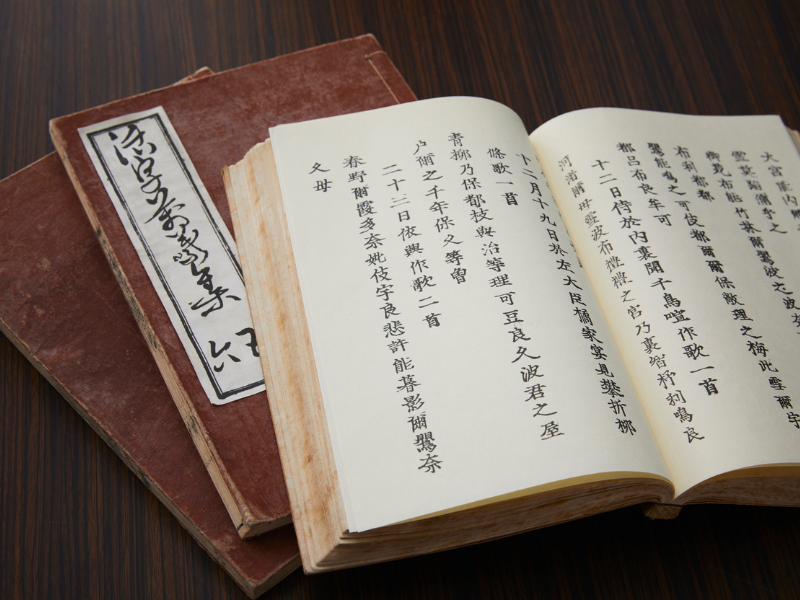 大宮能内
雪莫蹈禰乎之
御苑布能竹林爾鶯波之波奈
布利都都
鶯能鳴之可伎都爾爾保敝理之梅此雪爾宇
都呂布良牟可
十二日侍於内裏聞千鳥喧作歌一首
河渚爾母雪波布禮禮之宮乃裏智杼利鳴良
十二月十九日於左大臣橘家宴見攀折柳
條歌一首
青柳乃保都枝與治等理可豆良久波君之屋
戸爾之千年保久等曾
二十三日依興作歌二首
春野爾霞多奈妣伎宇良悲許能暮影爾鶯奈
久母
萬葉集
六